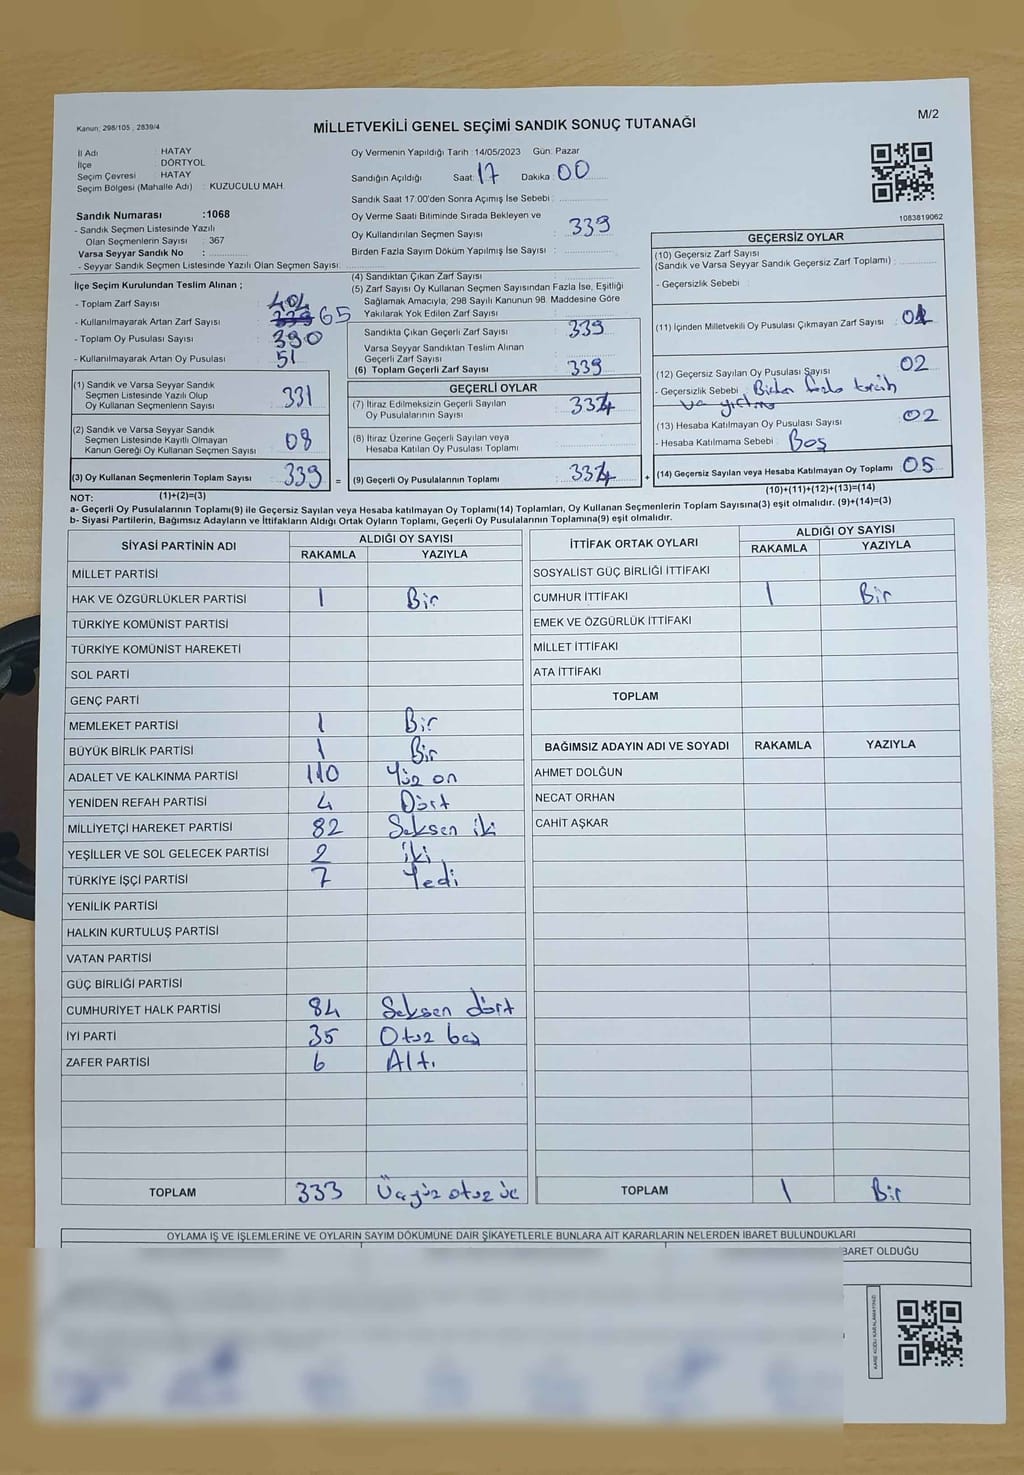 Kanun; 298/105 , 2839/4
MİLLETVEKİLİ GENEL SEÇİMİ SANDIK SONUÇ TUTANAĞI
M/2
İl Adı : HATAY
İlçe : DÖRTYOL
Seçim Çevresi : HATAY
Seçim Bölgesi (Mahalle Adı) : KUZUCULU MAH.
Sandık Numarası :1068
- Sandık Seçmen Listesinde Yazılı
Olan Seçmenlerin Sayısı : 367
Varsa Seyyar Sandık No :
- Seyyar Sandık Seçmen Listesinde Yazılı Olan Seçmen Sayısı:
Oy Vermenin Yapıldığı Tarih :14/05/2023 Gün: Pazar
Sandığın Açıldığı Saat: 17 Dakika: 00
Sandık Saat 17:00'den Sonra Açımış İse Sebebi :
Oy Verme Saati Bitiminde Sırada Bekleyen ve
Oy Kullandırılan Seçmen Sayısı : 339
Birden Fazla Sayım Döküm Yapılmış İse Sayısı :
1083819062
İlçe Seçim Kurulundan Teslim Alınan ;
- Toplam Zarf Sayısı : 404
- Kullanılmayarak Artan Zarf Sayısı : 339 65
- Toplam Oy Pusulası Sayısı : 390
- Kullanılmayarak Artan Oy Pusulası : 51
(1) Sandık ve Varsa Seyyar Sandık
Seçmen Listesinde Yazılı Olup
Oy Kullanan Seçmenlerin Sayısı : 331
(2) Sandık ve Varsa Seyyar Sandık
Seçmen Listesinde Kayıtlı Olmayan
Kanun Gereği Oy Kullanan Seçmen Sayısı : 08
(3) Oy Kullanan Seçmenlerin Toplam Sayısı : 339 =
(4) Sandıktan Çıkan Zarf Sayısı :
(5) Zarf Sayısı Oy Kullanan Seçmen Sayısından Fazla İse, Eşitliği
Sağlamak Amacıyla, 298 Sayılı Kanunun 98. Maddesine Göre
Yakılarak Yok Edilen Zarf Sayısı :
Sandıkta Çıkan Geçerli Zarf Sayısı : 339
Varsa Seyyar Sandıktan Teslim Alınan
Geçerli Zarf Sayısı :
(6) Toplam Geçerli Zarf Sayısı : 339
GEÇERLİ OYLAR
(7) İtiraz Edilmeksizin Geçerli Sayılan
Oy Pusulalarının Sayısı : 334
(8) İtiraz Üzerine Geçerli Sayılan veya
Hesaba Katılan Oy Pusulası Toplamı :
(9) Geçerli Oy Pusulalarının Toplamı : 334 +
GEÇERSİZ OYLAR
(10) Geçersiz Zarf Sayısı
(Sandık ve Varsa Seyyar Sandık Geçersiz Zarf Toplamı) :
- Geçersizlik Sebebi :
(11) İçinden Milletvekili Oy Pusulası Çıkmayan Zarf Sayısı : 01
(12) Geçersiz Sayılan Oy Pusulası Sayısı : 02
- Geçersizlik Sebebi : Birden fazla tercih
ve yırtma
(13) Hesaba Katılmayan Oy Pusulası Sayısı : 02
- Hesaba Katılmama Sebebi : Boş
(14) Geçersiz Sayılan veya Hesaba Katılmayan Oy Toplamı : 05
NOT: (1)+(2)=(3) (10)+(11)+(12)+(13)=(14)
a- Geçerli Oy Pusulalarının Toplamı(9) ile Geçersiz Sayılan veya Hesaba katılmayan Oy Toplamı(14) Toplamları, Oy Kullanan Seçmenlerin Toplam Sayısına(3) eşit olmalıdır. (9)+(14)=(3)
b- Siyasi Partilerin, Bağımsız Adayların ve İttifakların Aldığı Ortak Oyların Toplamı, Geçerli Oy Pusulalarının Toplamına(9) eşit olmalıdır.
SİYASİ PARTİNİN ADI ALDIĞI OY SAYISI
RAKAMLA YAZIYLA
MİLLET PARTİSİ
HAK VE ÖZGÜRLÜKLER PARTİSİ 1 Bir
TÜRKİYE KOMÜNİST PARTİSİ
TÜRKİYE KOMÜNİST HAREKETİ
SOL PARTİ
GENÇ PARTİ
MEMLEKET PARTİSİ 1 Bir
BÜYÜK BİRLİK PARTİSİ 1 Bir
ADALET VE KALKINMA PARTİSİ 110 Yüz on
YENİDEN REFAH PARTİSİ 4 Dört
MİLLİYETÇİ HAREKET PARTİSİ 82 Seksen iki
YEŞİLLER VE SOL GELECEK PARTİSİ 2 iki
TÜRKİYE İŞÇİ PARTİSİ 7 Yedi
YENİLİK PARTİSİ
HALKIN KURTULUŞ PARTİSİ
VATAN PARTİSİ
GÜÇ BİRLİĞİ PARTİSİ
CUMHURİYET HALK PARTİSİ 84 Seksen dört
İYİ PARTİ 35 Otuz beş
ZAFER PARTİSİ 6 Altı
TOPLAM 333 Üçyüz otuz üç
İTTİFAK ORTAK OYLARI ALDIĞI OY SAYISI
RAKAMLA YAZIYLA
SOSYALİST GÜÇ BİRLİĞİ İTTİFAKI
CUMHUR İTTİFAKI 1 Bir
EMEK VE ÖZGÜRLÜK İTTİFAKI
MİLLET İTTİFAKI
ATA İTTİFAKI
TOPLAM
BAĞIMSIZ ADAYIN ADI VE SOYADI RAKAMLA YAZIYLA
AHMET DOLĞUN
NECAT ORHAN
CAHİT AŞKAR
TOPLAM 1 Bir
OYLAMA İŞ VE İŞLEMLERİNE VE OYLARIN SAYIM DÖKÜMÜNE DAİR ŞİKAYETLERLE BUNLARA AİT KARARLARIN NELERDEN İBARET BULUNDUKLARI
BARET OLDUĞU